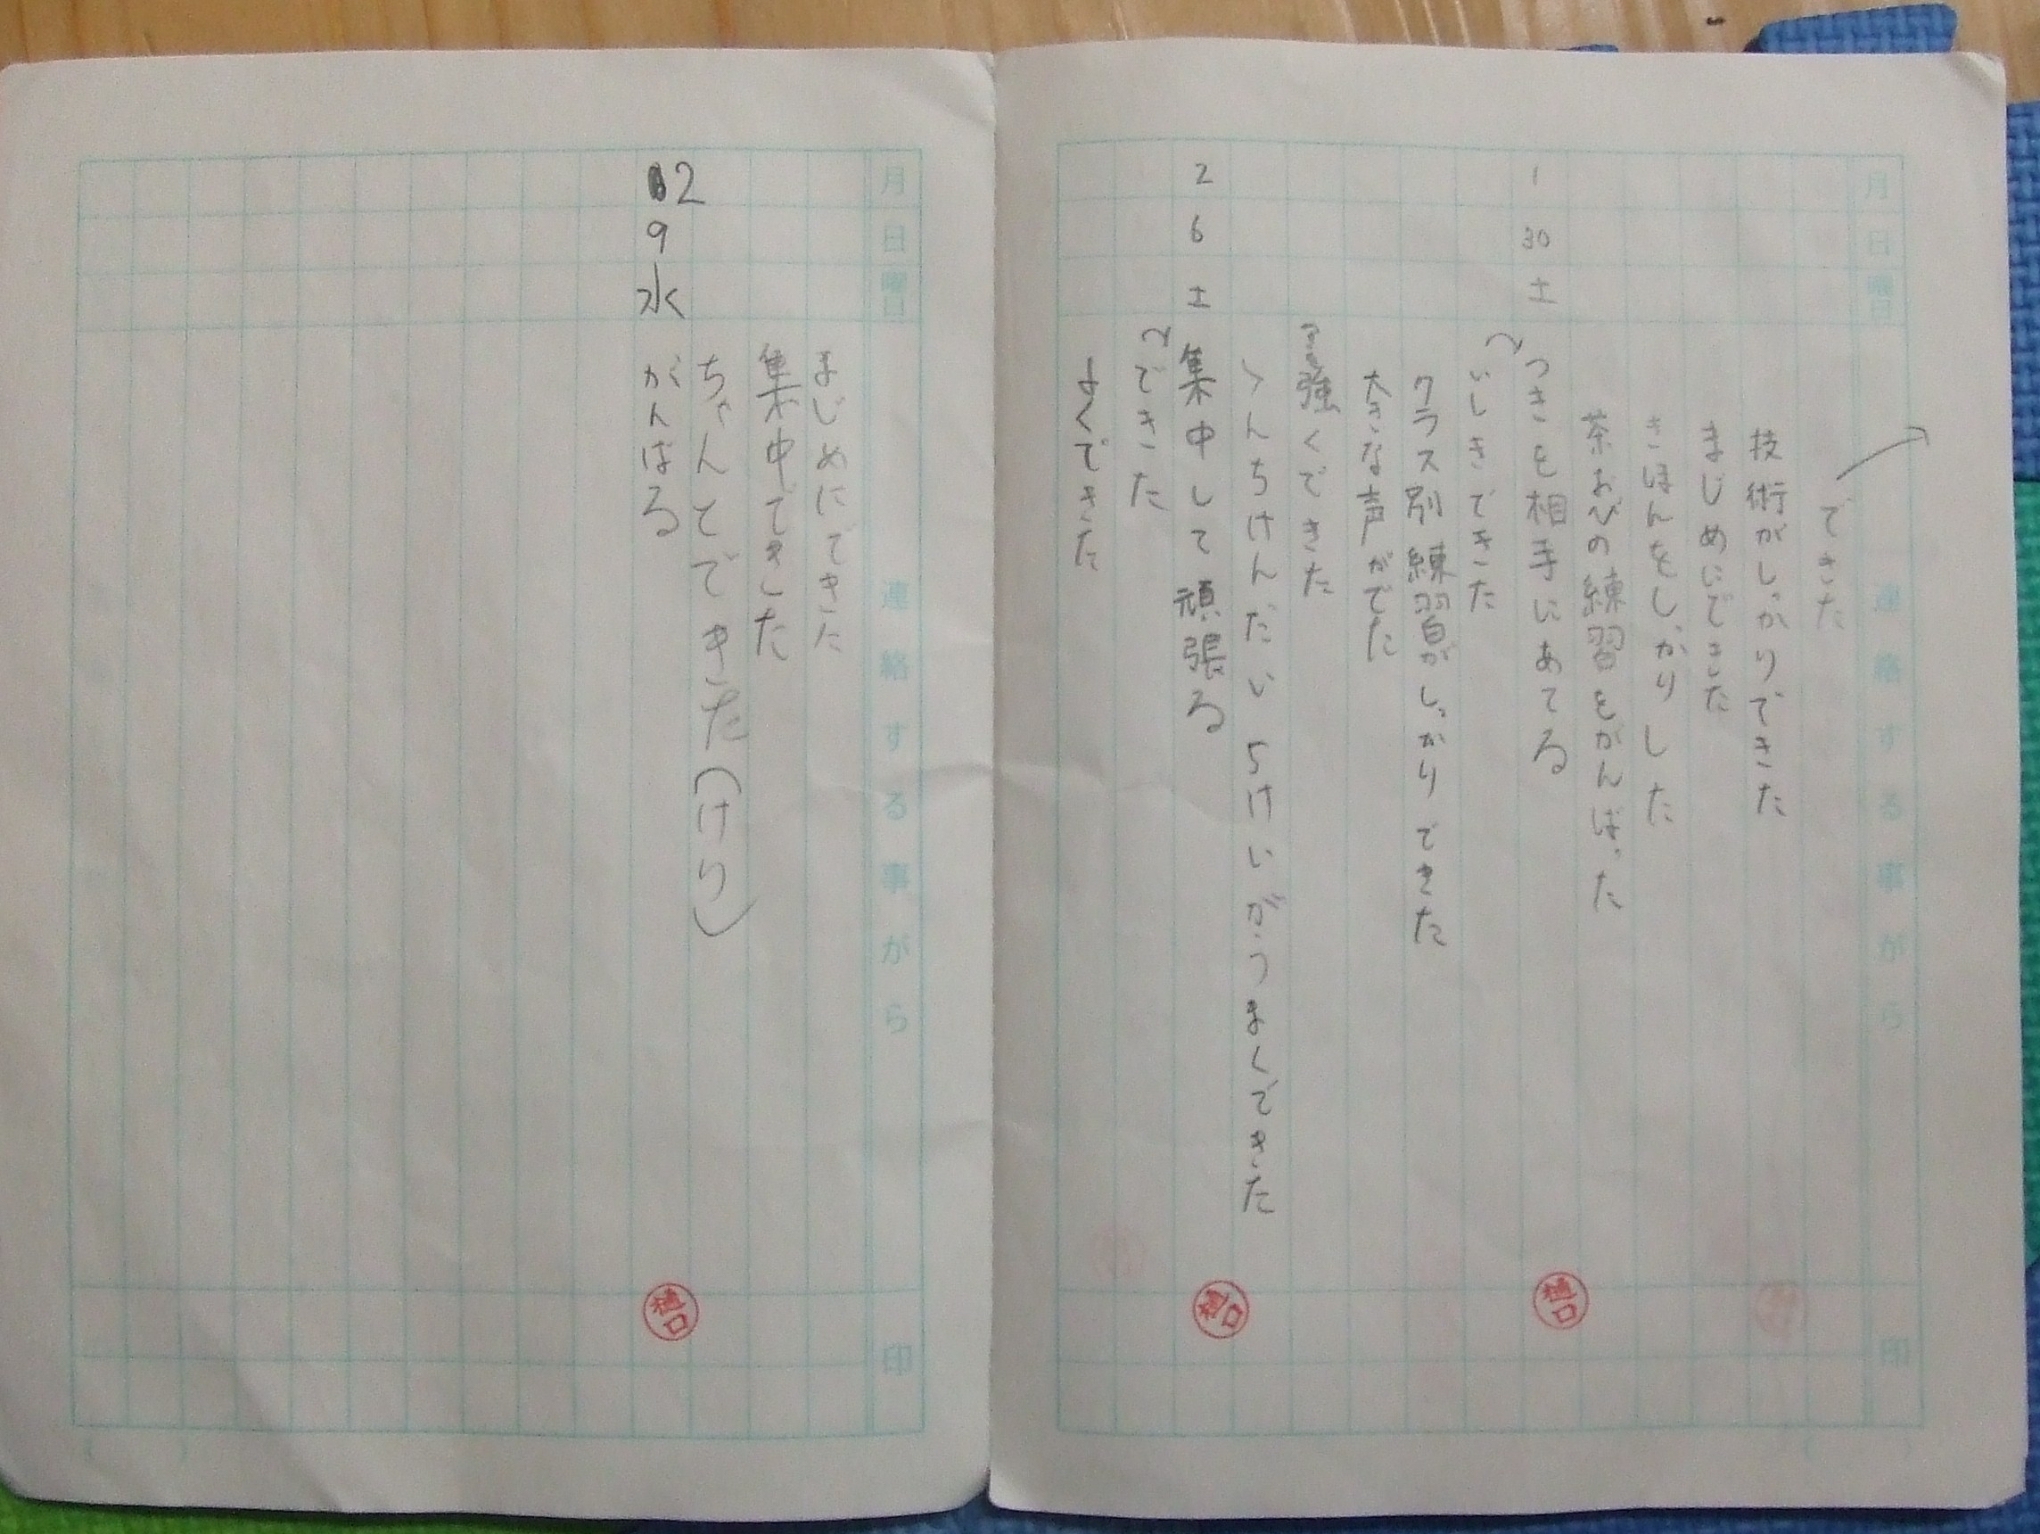 月 日 曜日 連絡する事がら 印
できた
技術がしっかりできた
まじめにできた
きほんをしっかりした
茶おびの練習をがんばった
1 30 土 つきを相手にあてる 樋口
いしきできた
クラス別練習がしっかりできた
大きな声がでた
強くできた
んちけんだい5けいがうまくできた
2 6 土 集中して頑張る 樋口
できた
よくできた
月 日 曜日 連絡する事がら 印
まじめにできた
集中できた
ちゃんとできた(けり)
2 9 水 がんばる 樋口